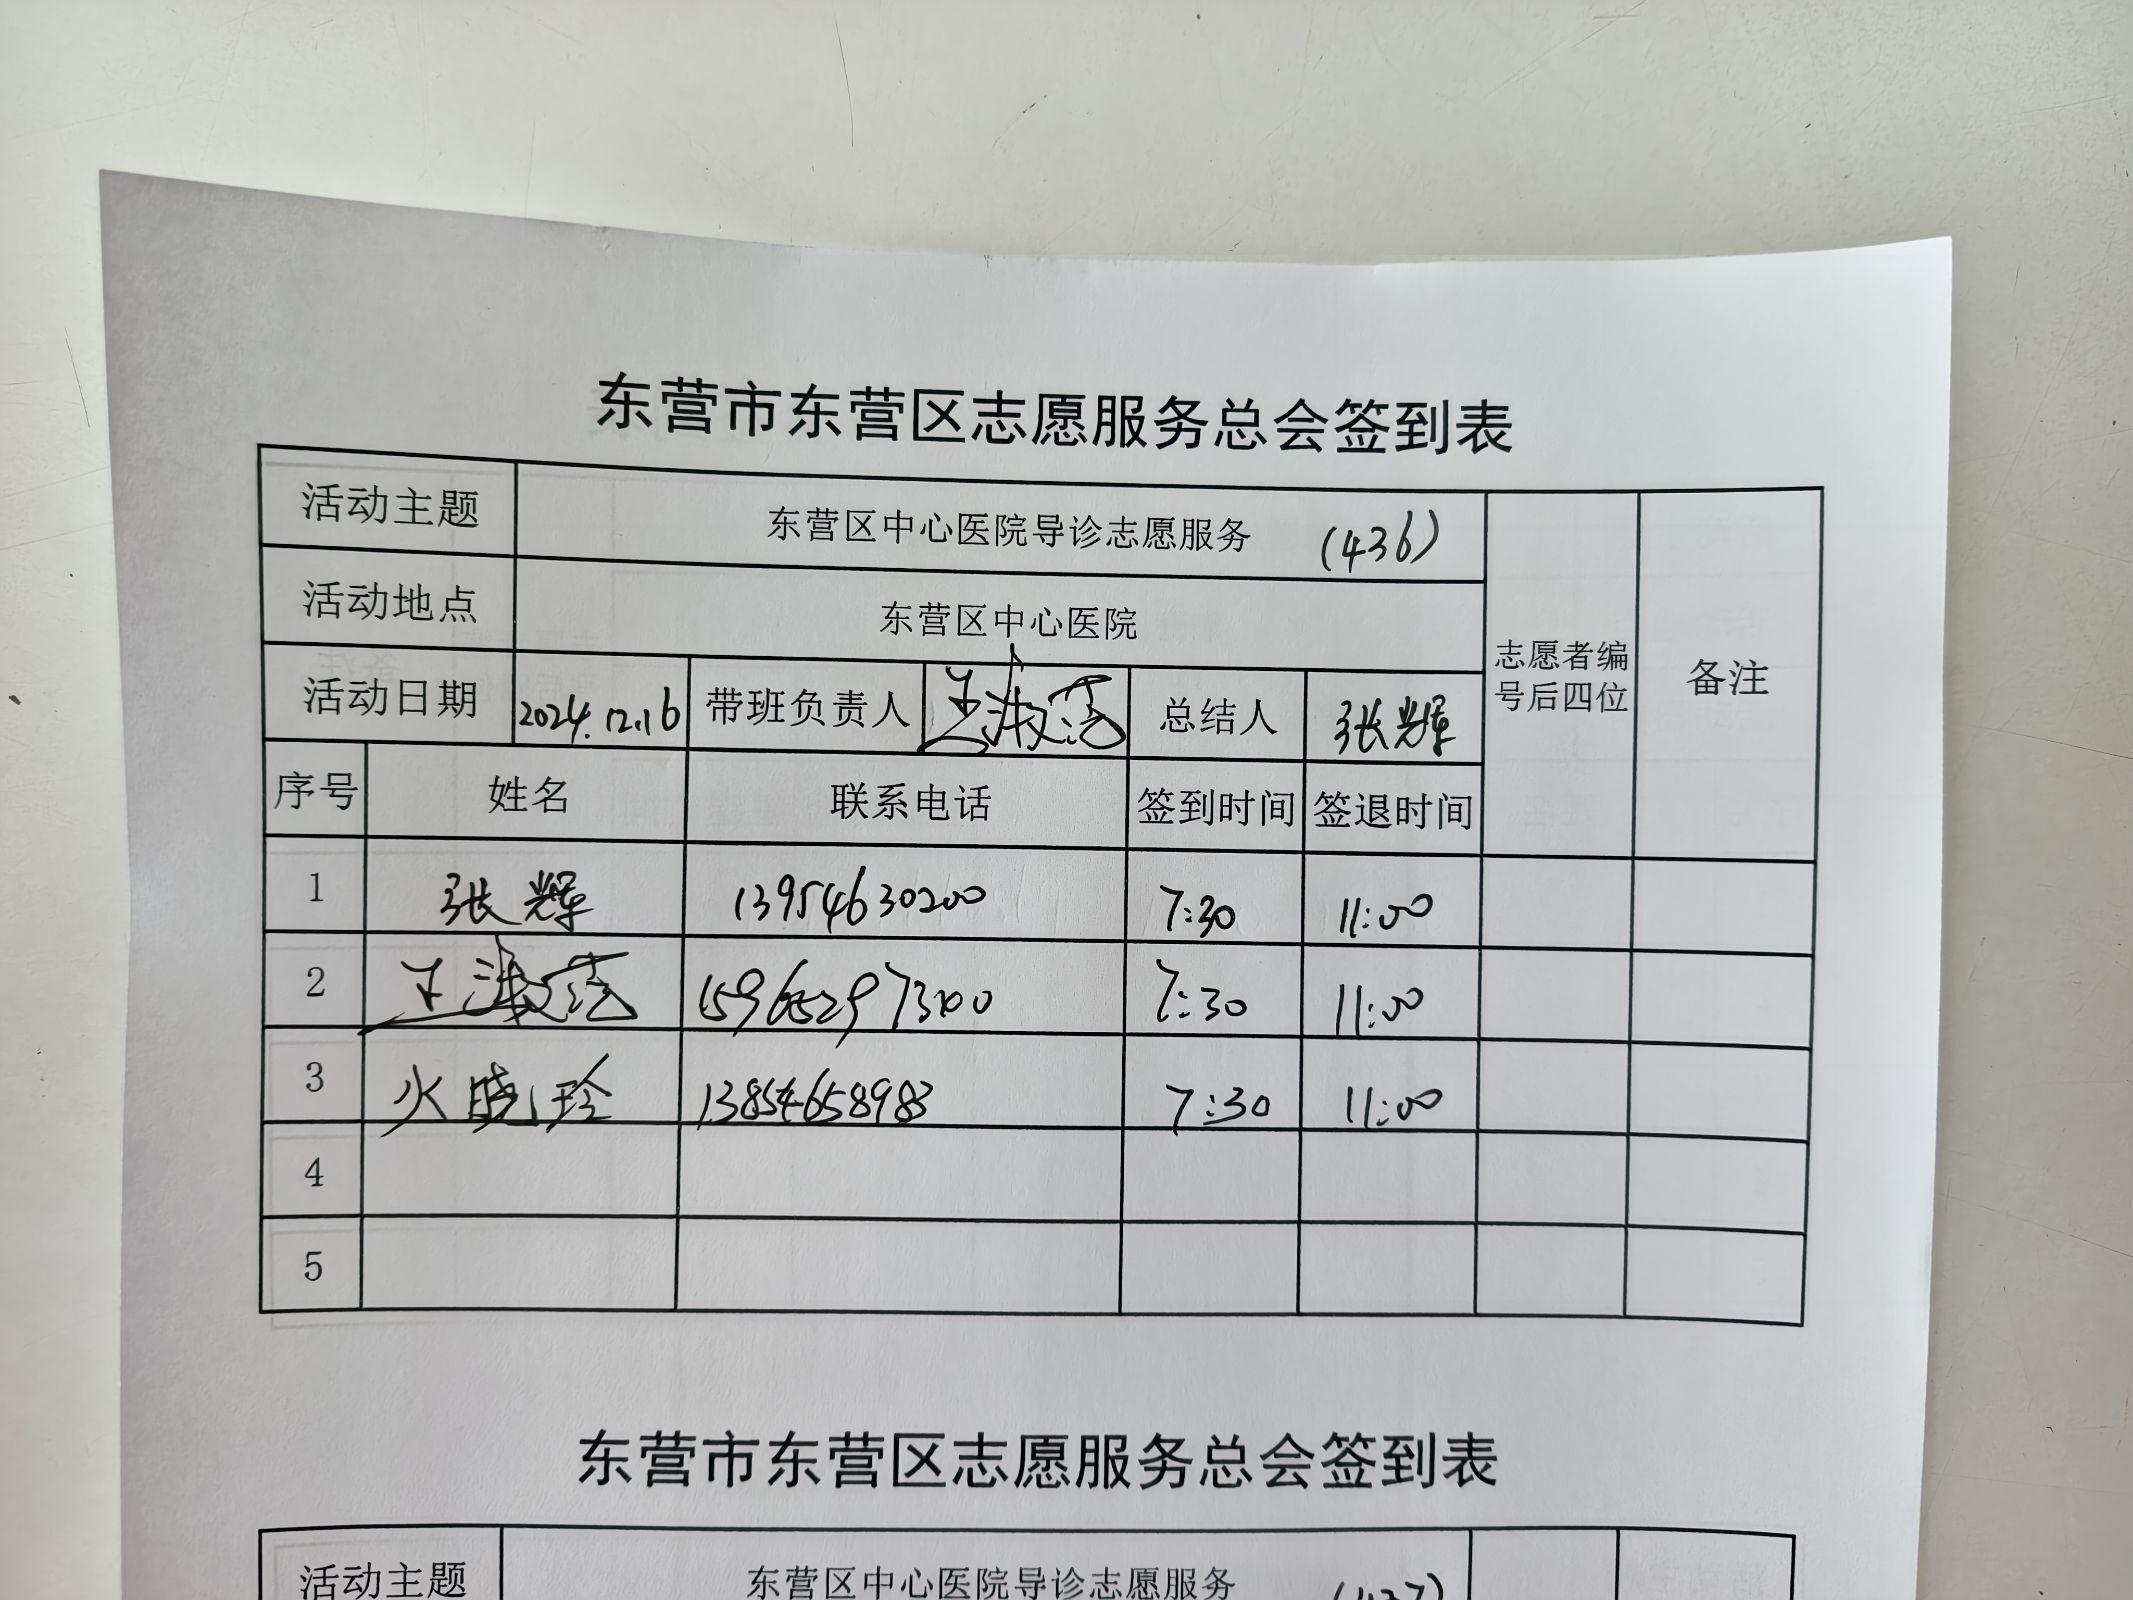 东营市东营区志愿服务总会签到表
活动主题 东营区中心医院导诊志愿服务 (436) 志愿者编号后四位 备注
活动地点 东营区中心医院
活动日期 2024.12.16 带班负责人 王淑 总结人 张辉
序号 姓名 联系电话 签到时间 签退时间
1 张辉 13954630200 7:30 11:00
2 王淑 7:30 11:00
3 火晓玲 13854658983 7:30 11:00
4
5
东营市东营区志愿服务总会签到表
活动主题 东营区中心医院导诊志愿服务 (437)